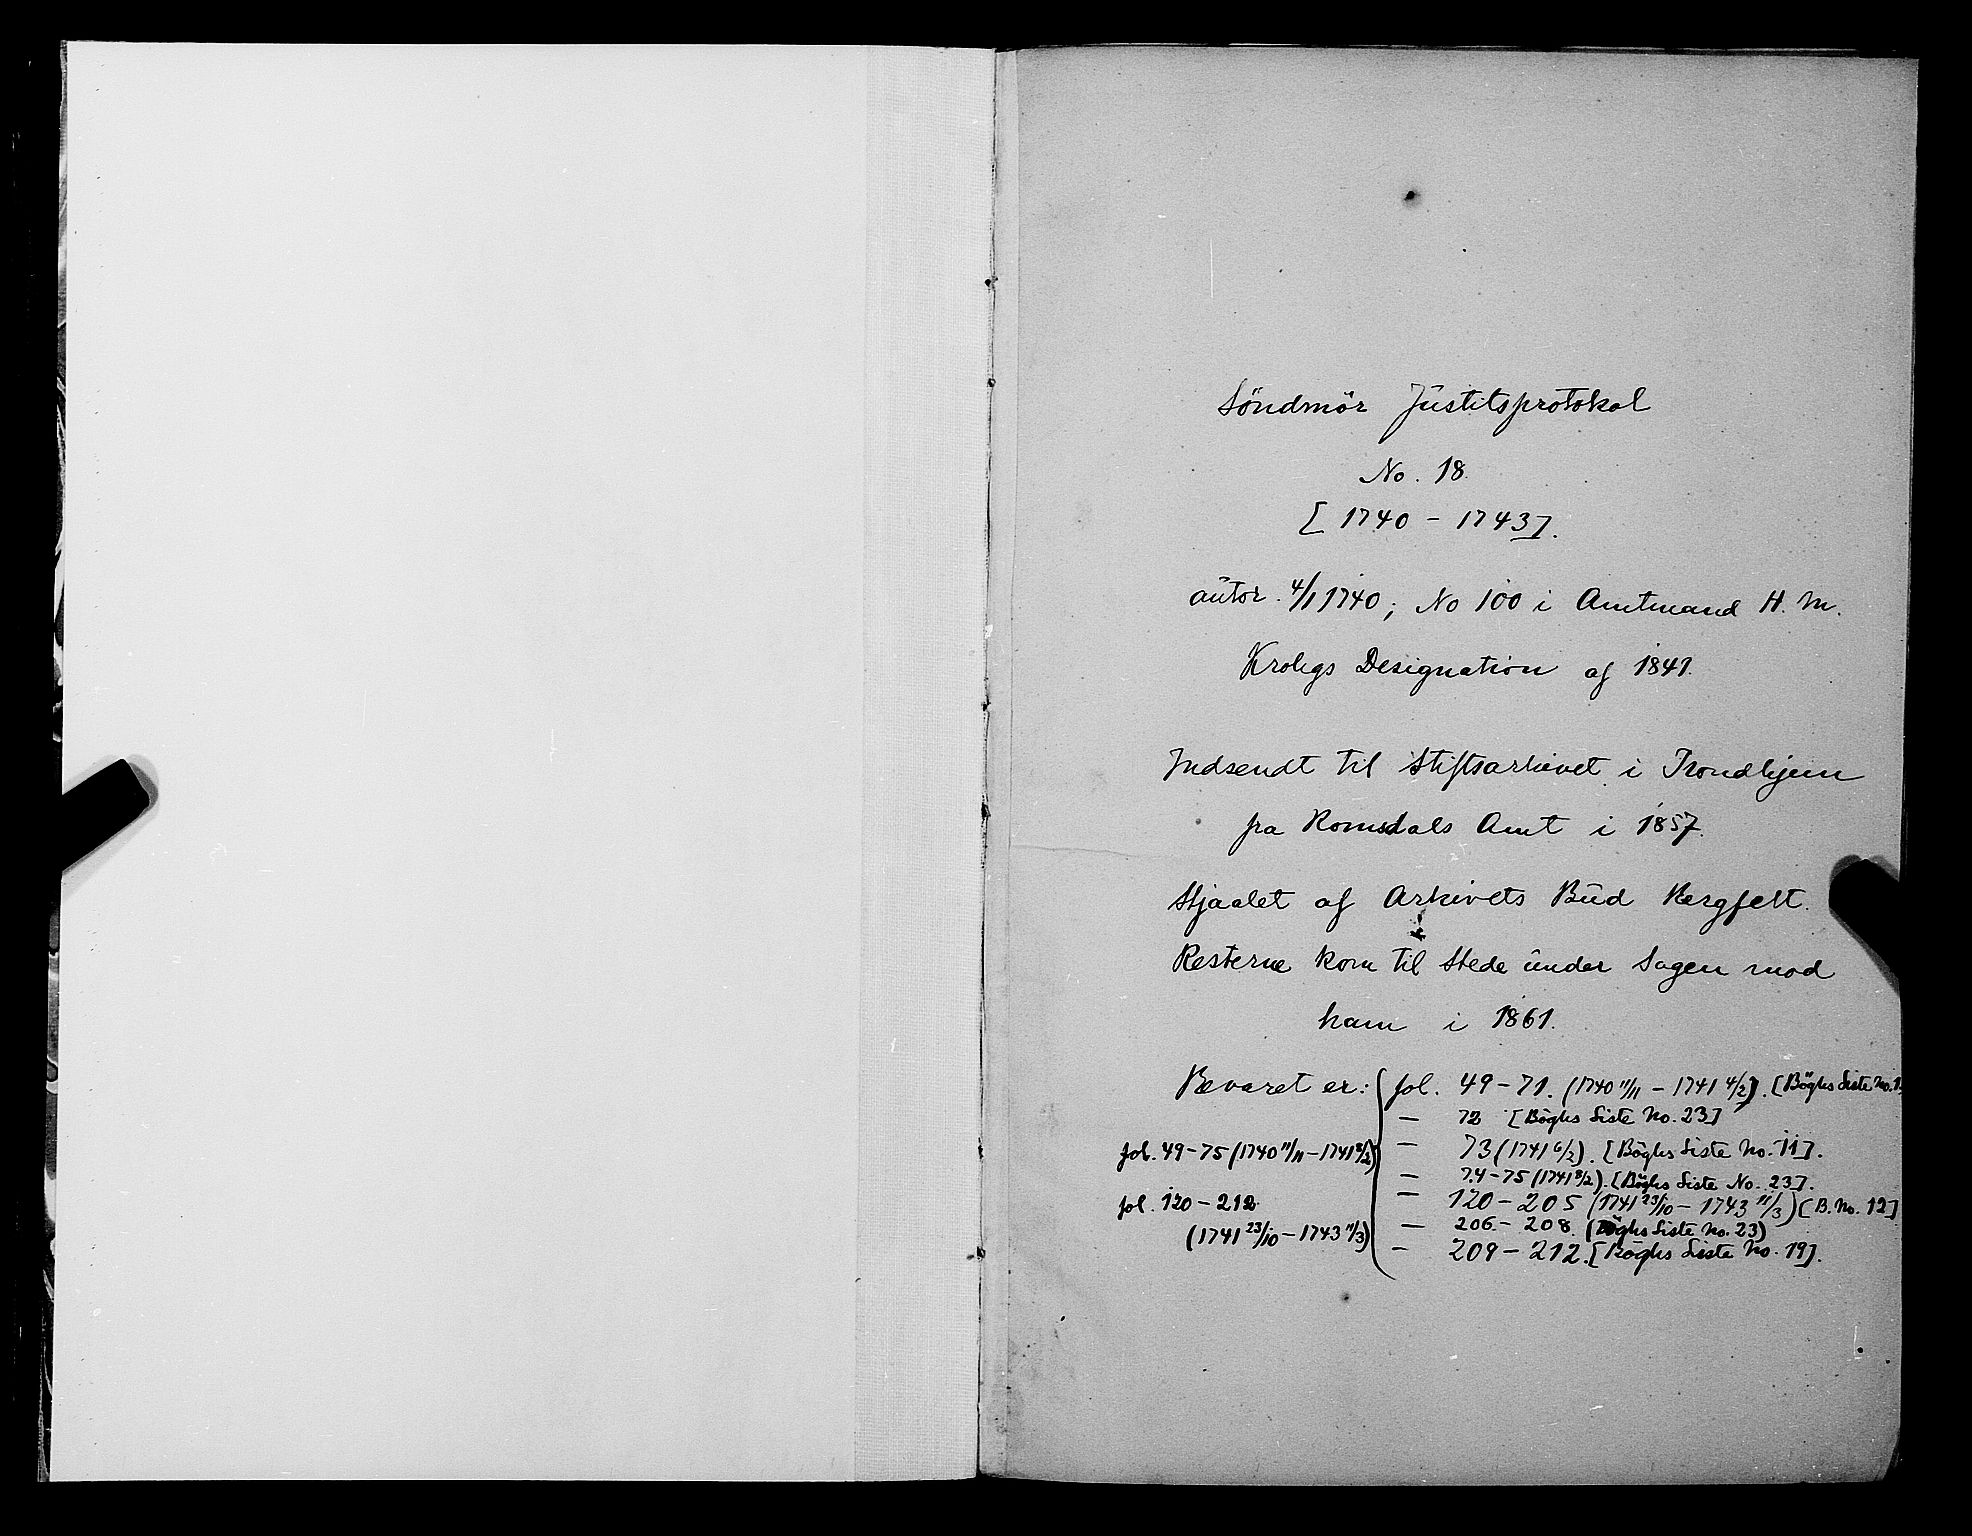 Söndmör Justitsprotokol
No. 18
[1740 - 1743].
autor. 4/1 1740; No 100 i Amtmand H. M.
Krohgs Designation af 1841.
Indsendt til Stiftsarkivet i Trondhjem
fra Romsdals Amt i 1857.
Stjaalet af Arkivets Bud Bergfelt.
Resterne kom til Stede under Sagen mod
ham i 1861.
Bevaret er: fol. 49-71. (1740 11/11 - 1741 4/2). [Böghs Liste No.
— 72 [Böghs Liste No. 23]
fol. 49-75 (1740 11/11 - 1741 8/2) — 73 (1741 6/2). [Böghs Liste No. 11].
— 74-75 (1741 8/2). [Böghs Liste No. 23].
fol. 120 - 212 — 120 - 205 (1741 23/10 - 1743 11/3) [B. No. 12]
(1741 23/10 - 1743 11/3) — 206 - 208. (Böghs Liste No. 23)
— 209 - 212. [Böghs Liste No. 19].